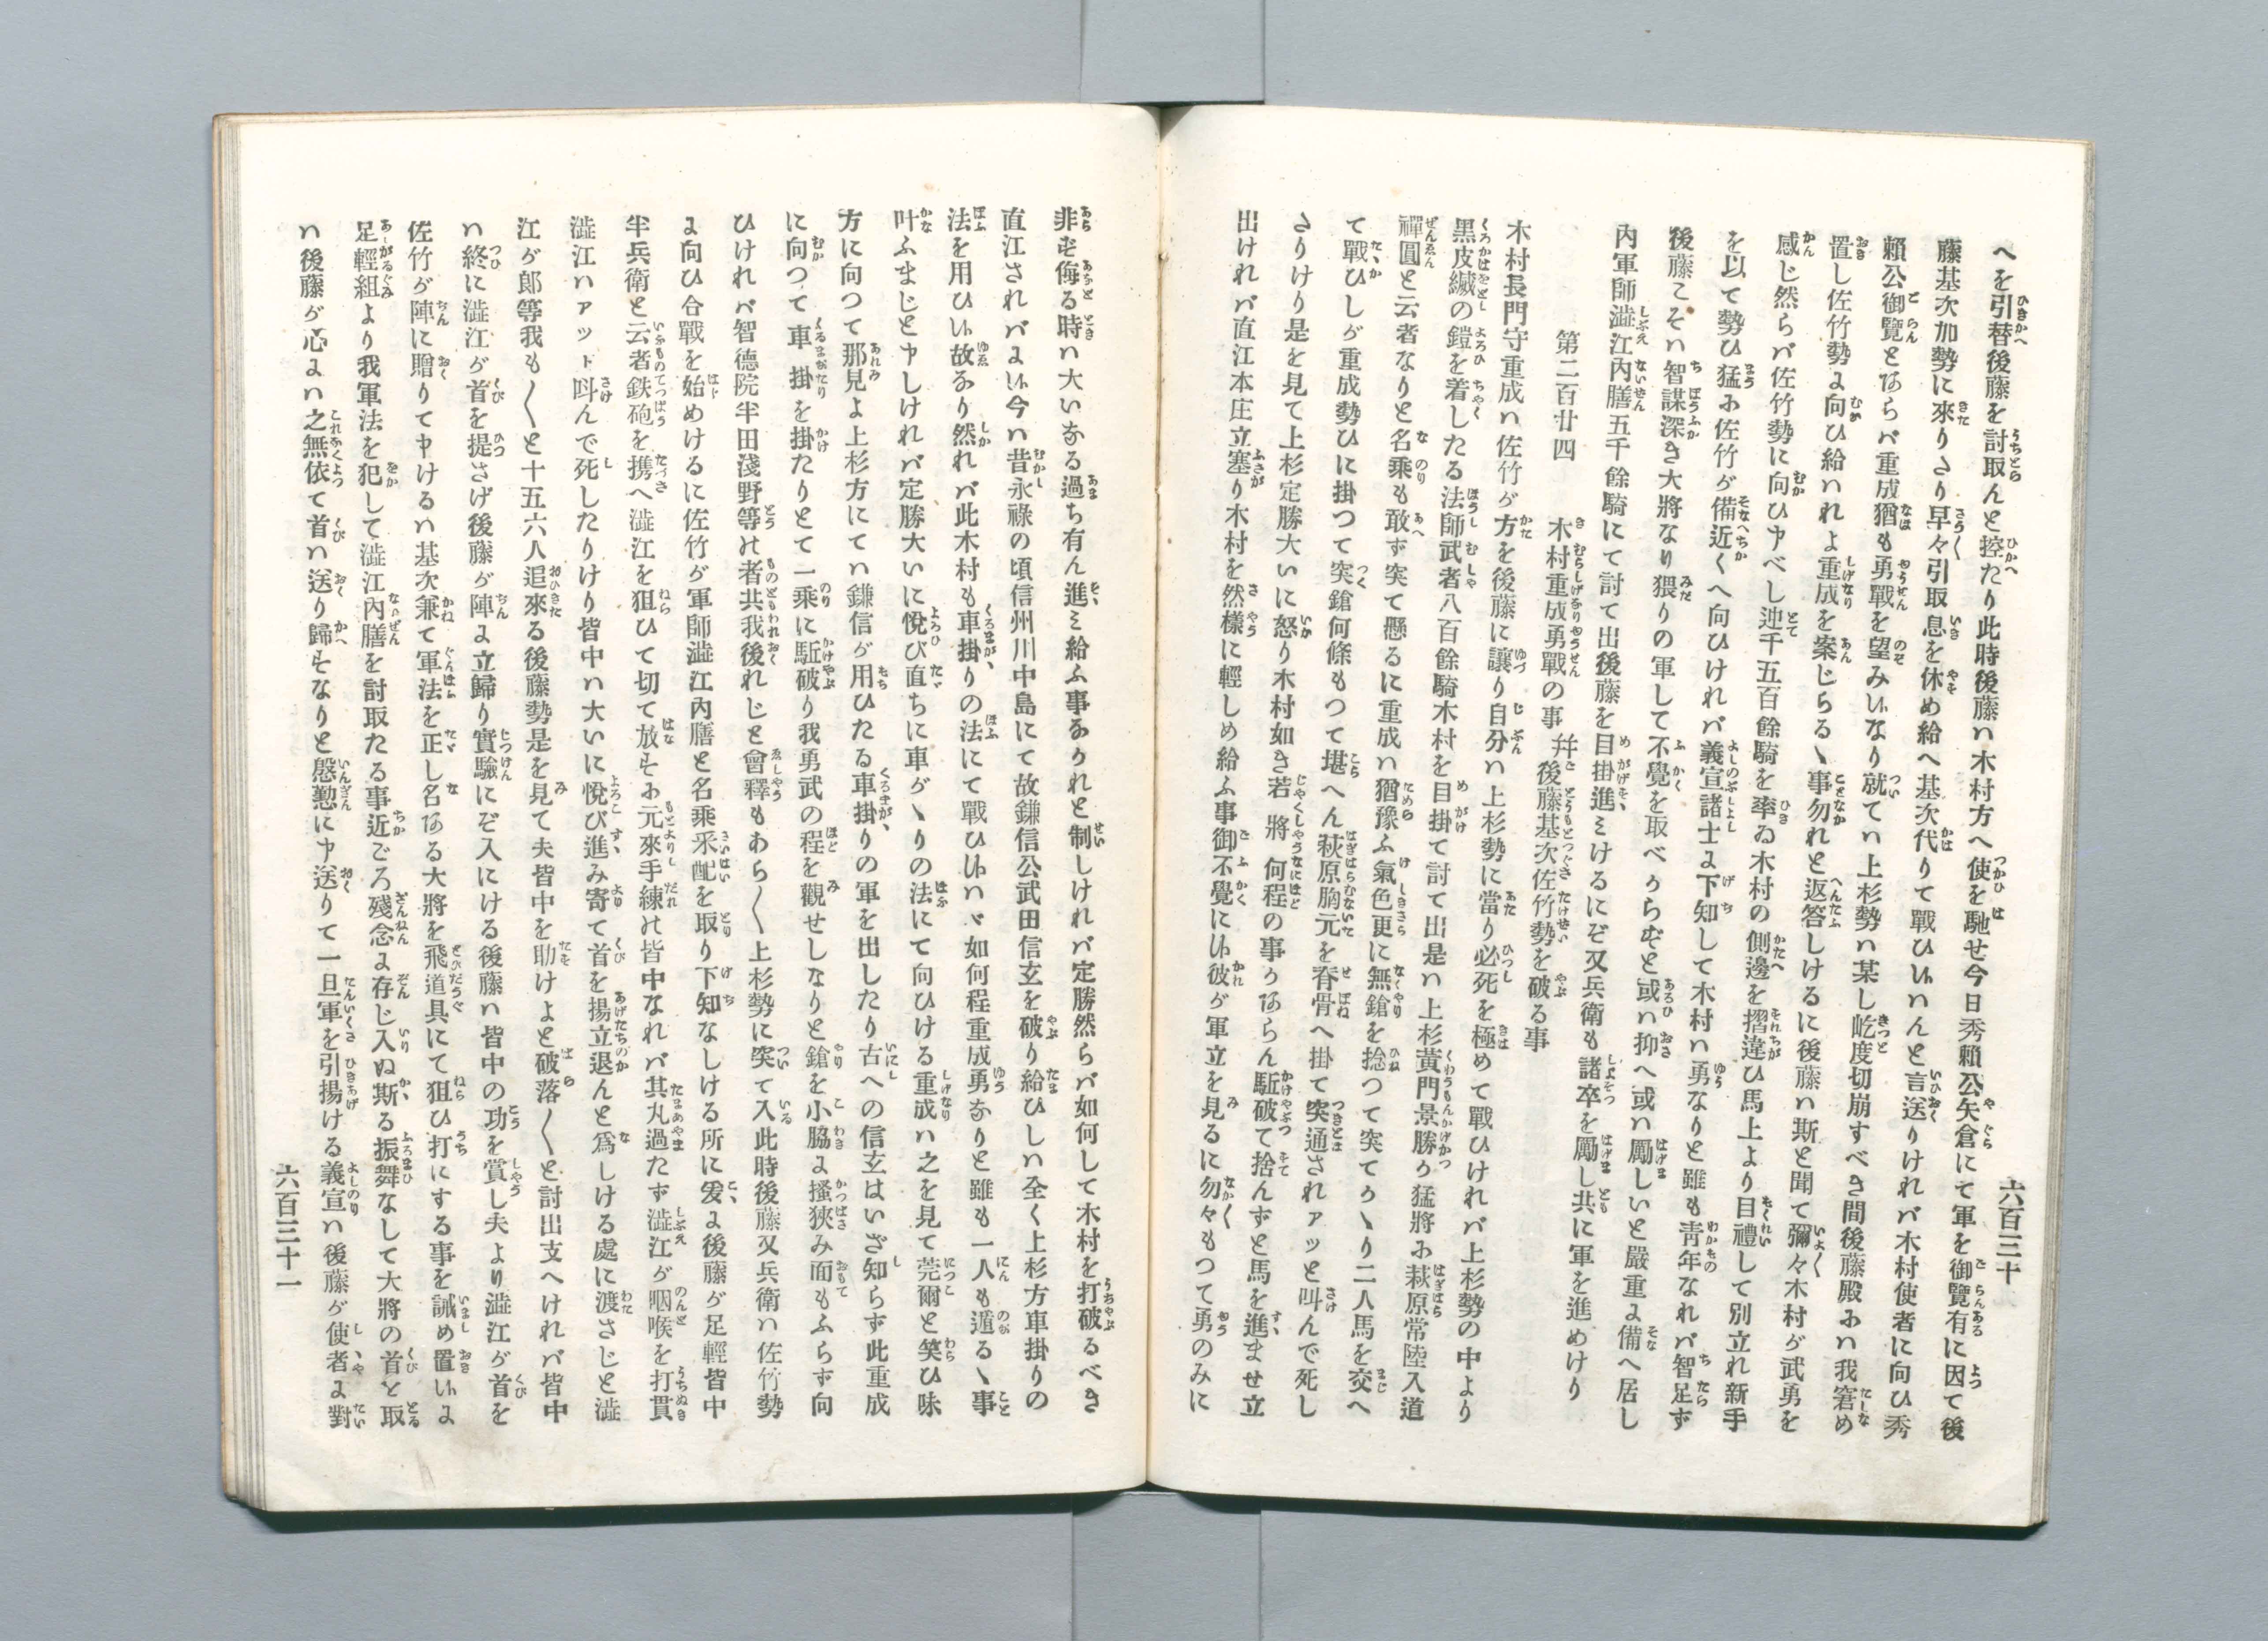 六百三十
へを引替後藤を討取んと控たり此時後藤ハ木村方へ使を馳せ今日秀頼公矢倉にて軍を御覽有に因て後
藤基次加勢に來りさり早々引取息を休め給へ基次代りて戰ひ申んと言送りけれバ木村使者に向ひ秀
頼公御覽とあらバ重成猶も勇戰を望み申なり就てハ上杉勢ハ某し屹度切崩すべき間後藤殿にハ我窘め
置し佐竹勢に向ひ給ハれよ重成を案じらるゝ事勿れと返答しけるに後藤ハ斯と聞て彌々木村が武勇を
感じ然らバ佐竹勢に向ひ申べし迚千五百餘騎を率ゐ木村の側邊を摺違ひ馬上より目禮して別立れ新手
を以て勢ひ猛に佐竹が備近くへ向ひけれバ義宣諸士に下知して木村ハ勇なりと雖も青年なれバ智足ず
後藤こそハ智謀深き大將なり猥りの軍して不覺を取べからずと或ハ抑へ或ハ勵しいと嚴重に備へ居し
内軍師澁江内膳五千餘騎にて討て出後藤を目掛進ミけるにぞ又兵衛も諸卒を勵し共に軍を進めけり
第二百廿四　木村重成勇戰の事　并後藤基次佐竹勢を破る事
木村長門守重成ハ佐竹が方を後藤に讓り自分ハ上杉勢に當り必死を極めて戰ひけれバ上杉勢の中より
黑皮縅の鎧を着したる法師武者八百餘騎木村を目掛て討て出是ハ上杉黄門景勝が猛將に萩原常陸入道
禪圓と云者なりと名乘も敢ず突て懸るに重成ハ猶豫ふ氣色更に無鎗を捻つて突てかゝり二人馬を交へ
て戰ひしが重成勢ひに掛つて突鎗何條もつて堪へん萩原胸元を脊骨へ掛て突通されアッと叫んで死し
さりけり是を見て上杉定勝大いに怒り木村如き若將何程の事かあらん駈破て捨んずと馬を進ませ立
出けれバ直江本庄立塞り木村を然樣に輕しめ給ふ事御不覺に候彼が軍立を見るに勿々もつて勇のみに
非ず侮る時ハ大いなる過ち有ん進ミ給ふ事なかれと制しけれバ定勝然らバ如何して木村を打破るべき
直江さればに候今ハ昔永祿の頃信州川中島にて故鎌信公武田信玄を破り給ひしハ全く上杉方車掛りの
法を用ひ候故なり然れバ此木村も車掛りの法にて戰ひ候ハヾ如何程重成勇なりと雖も一人も遁るゝ事
叶ふまじと申しけれバ定勝大いに悅び直ちに車がゝりの法にて向ひける重成ハ之を見て莞爾と笑ひ味
方に向つて那見よ上杉方にてハ鎌信が用ひたる車掛りの軍を出したり古への信玄はいざ知らず此重成
に向つて車掛を掛たりとて一乘に駈破り我勇武の程を觀せしなりと鎗を小脇に掻挾み面もふらず向
ひけれバ智德院半田淺野等の者共我後れじと會釋もあらく上杉勢に突て入此時後藤又兵衛ハ佐竹勢
に向ひ合戰を始めけるに佐竹が軍師澁江内膳と名乘采配を取り下知なしける所に爰に後藤が足輕皆中
半兵衛と云者鉄砲を携へ澁江を狙ひて切て放すに元來手練の皆中なれバ其丸過たず澁江が咽喉を打貫
澁江ハアット呌んで死したりけり皆中ハ大いに悅び進み寄て首を揚立退んと爲しける處に渡さじと澁
江が郎等我も〱と十五六人追來る後藤勢是を見て夫皆中を助けよと破落〱と討出支へけれバ皆中
ハ終に澁江が首を提さげ後藤が陣に立歸り實驗にぞ入にける後藤ハ皆中の功を賞し夫より澁江が首を
佐竹が陣に贈りて申けるハ基次兼て軍法を正し名ある大將を飛道具にて狙ひ打にする事を誡め置候に
足輕組より我軍法を犯して澁江内膳を討取たる事近ごろ殘念に存じ入ぬ斯る振舞なして大將の首を取
ハ後藤が心にハ之無依て首ハ送り歸すなりと慇懃に申送りて一旦軍を引揚ける義宣ハ後藤が使者に對
六百三十一